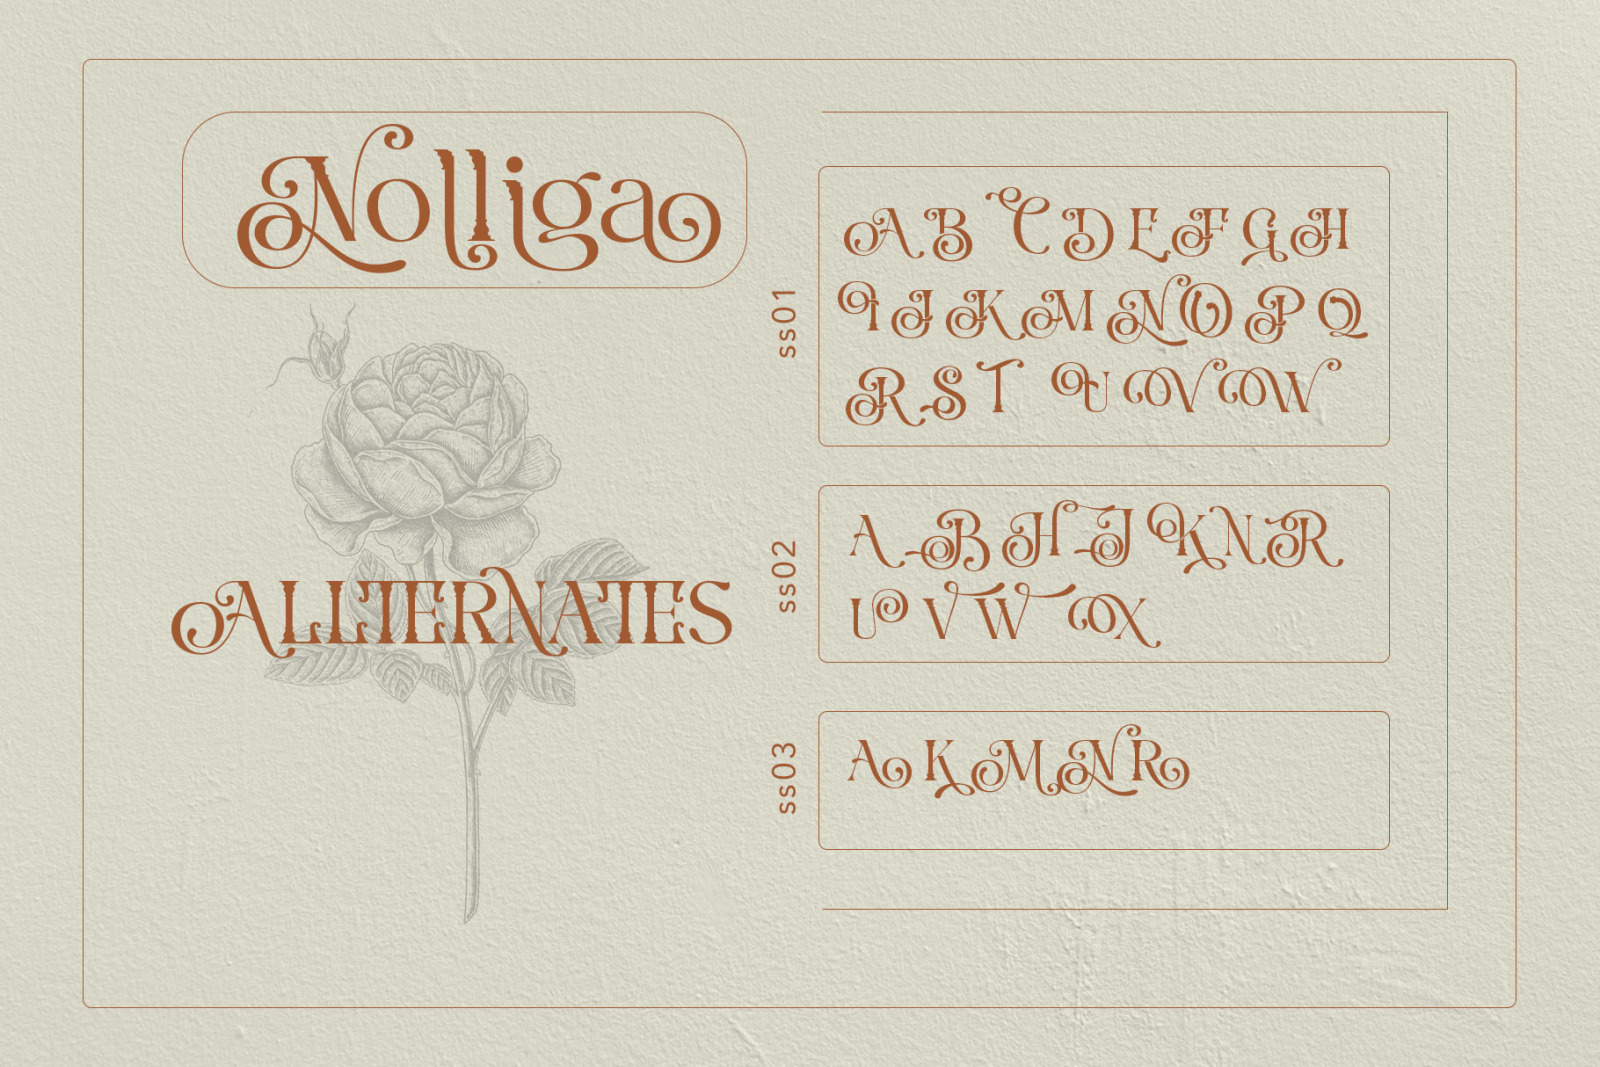 Nolliga
ALLTERNATES
ss01
A B C D E F G H
I J K M N O P Q
R S T U V W
ss02
A B H J K N R
U V W X
ss03
A K M N R